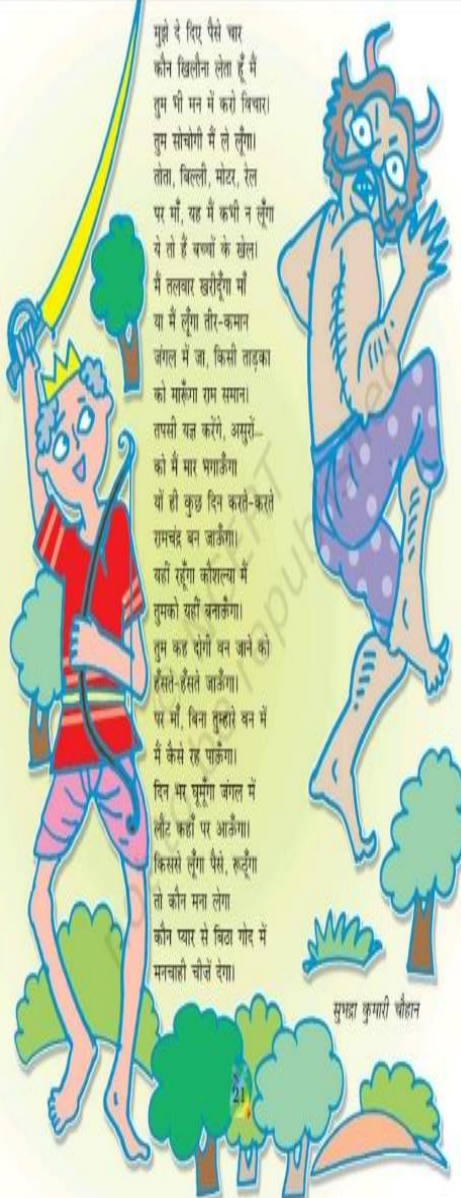 मुझे दे दिए पैसे चार
कौन खिलौना लेता हूँ मैं
तुम भी मन में करो विचार।
तुम सोचोगी मैं ले लूँगा।
तोता, बिल्ली, मोटर, रेल
पर माँ, यह मैं कभी न लूँगा
ये तो हैं बच्चों के खेल।
मैं तलवार खरीदूँगा माँ
या मैं लूँगा तीर-कमान
जंगल में जा, किसी ताड़का
को मारूँगा राम समान।
तपसी यज्ञ करेंगे, असुरों–
को मैं मार भगाऊँगा
यों ही कुछ दिन करते-करते
रामचंद्र बन जाऊँगा।
यहीं रहूँगा कौशल्या मैं
तुमको यहीं बनाऊँगा।
तुम कह दोगी वन जाने को
हँसते-हँसते जाऊँगा।
पर माँ, बिना तुम्हारे वन में
मैं कैसे रह पाऊँगा।
दिन भर घूमूँगा जंगल में
लौट कहाँ पर आऊँगा।
किससे लूँगा पैसे, रूठूँगा
तो कौन मना लेगा
कौन प्यार से बिठा गोद में
मनचाही चीज़ें देगा।
सुभद्रा कुमारी चौहान
21